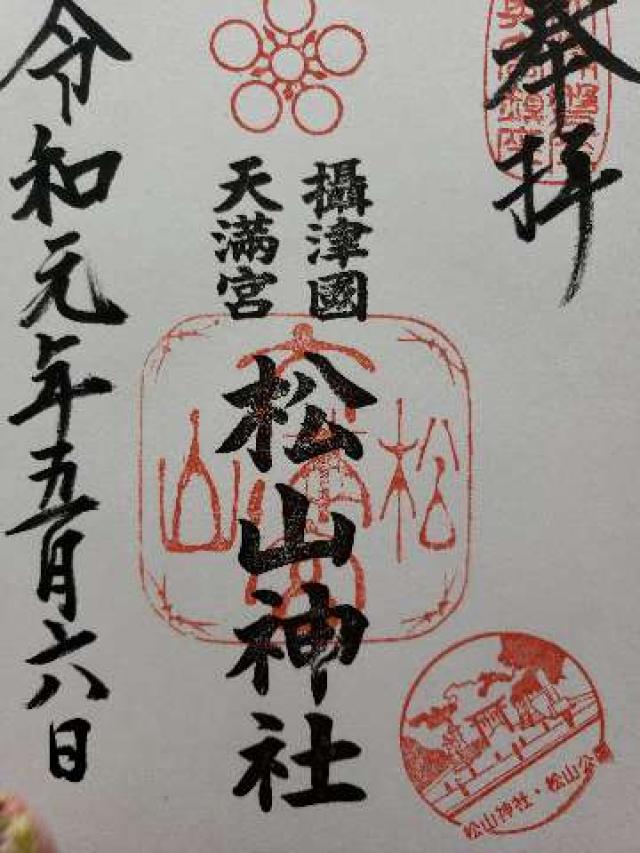 奉拝
攝津國
天満宮
松山神社
令和元年五月六日
松山神社・松山公園